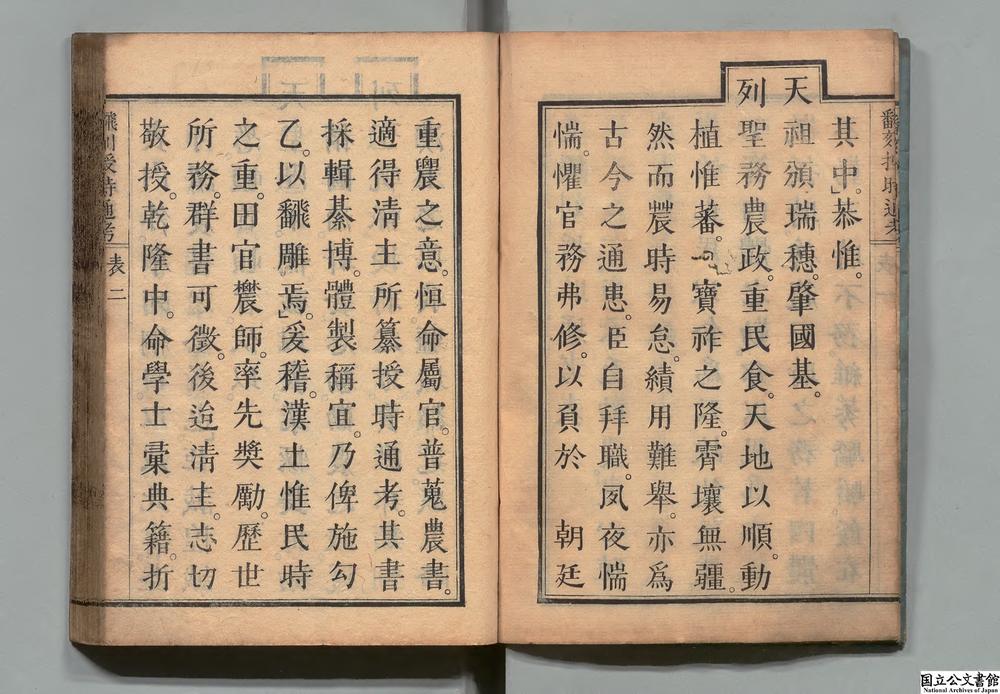 其中」恭惟。
天祖頒瑞穗。肇國基。
列聖務農政。重民食。天地以順。動
植惟蕃。寶祚之隆。霄壤無疆。
然而農時易怠。績用難舉。亦爲
古今之通患。臣自拜職。夙夜惴
惴。懼官務弗修。以負於　朝廷
重農之意。恒命屬官。普蒐農書。
適得淸主所纂授時通考。其書
採輯綦博。體製稱宜。乃俾施勾
乙。以飜雕焉」爰稽。漢土惟民時
之重。田官農師。率先奬勵。歷世
所務。群書可徵。後迨淸主。志切
敬授。乾隆中。命學士彙典籍。折
飜刻授時通考　表　二
国立公文書館
National Archives of Japan